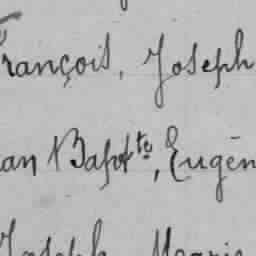 François, Joseph
an Bapt^te, Eugèn
Joseph Marie